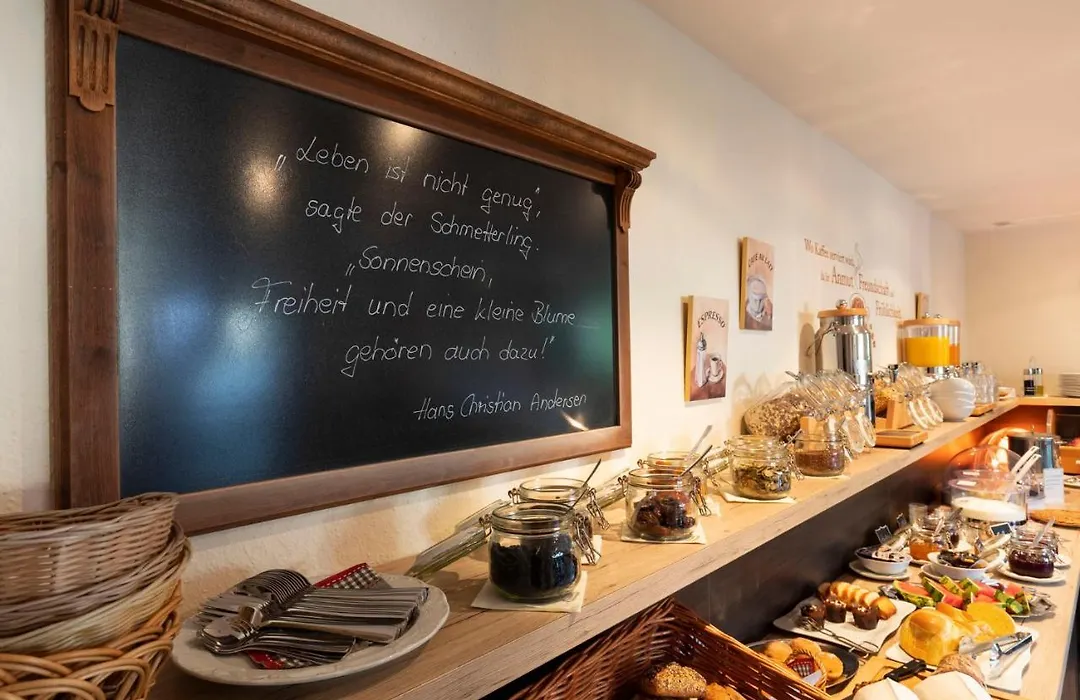 „Leben ist nicht genug",
sagte der Schmetterling.
„Sonnenschein,
Freiheit und eine kleine Blume
gehören auch dazu!"
Hans Christian Andersen
ESPRESSO
Wo Kaffee serviert wird,
da ist Anmut, Freundschaft
Fröhlichkeit